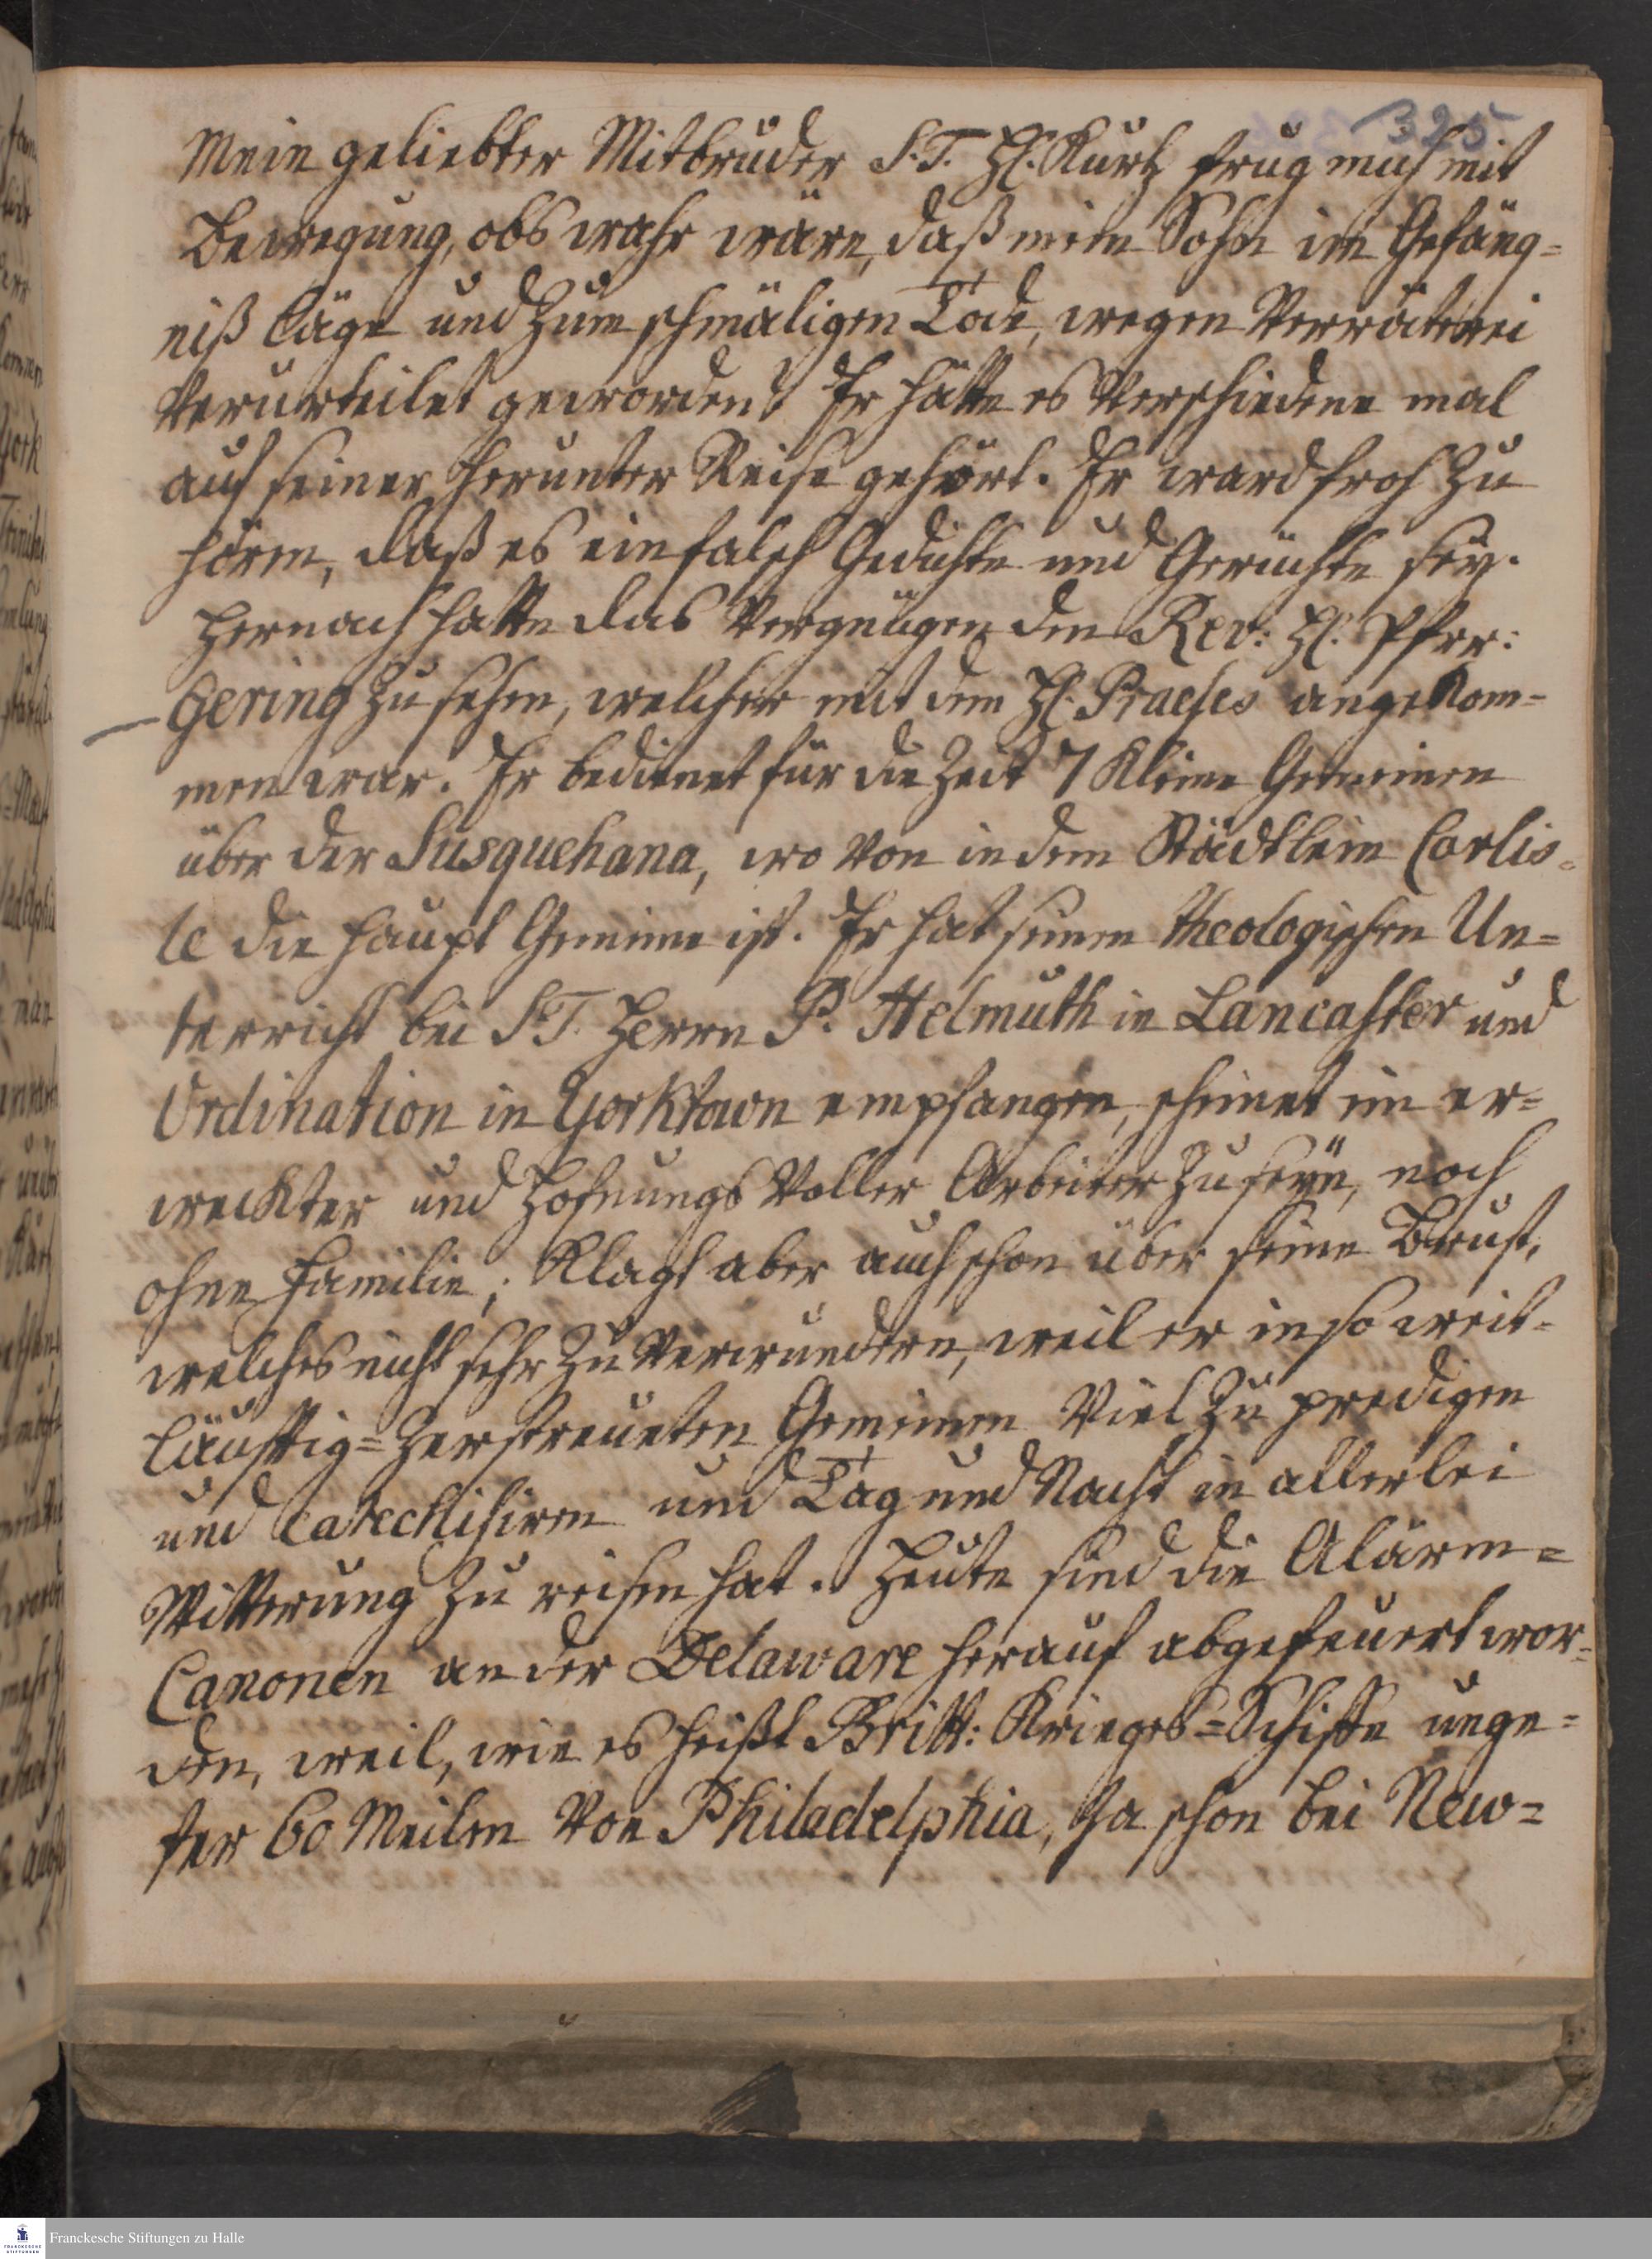 325
Mein geliebter Mitbruder S. T. H. Kurtz frug mich mit
Bewegung, obs wahr wäre, daß mein Sohn im Gefäng=
niß läge und zum schmäligen Tode, wegen Verräterei
Verurteilet geworden? Er hätte es Verschiedene mal
auf seiner herunter Reise gehört. Er ward froh zu
hören, daß es ein falsch Gedichte und Gerüchte sey.
Hernach hatte das Vergnügen den Rev: H. Pfrr:
Gering zu sehen, welcher mit dem H. Praeses angekom=
men war. Er bedienet für die Zeit 7 kleine Gemeinen
über der Susquehana, wo von in dem Städtlein Carlis=
le die haupt Gemeine ist. Er hat seinen theologischen Un=
terricht bei S. T. Herrn P. Helmuth in Lancaster und
Ordination in Yorktown empfangen, scheinet ein er=
weckter und Hofnungs Voller Arbeiter zu seyn, noch
ohne Familie; Klagt aber auch schon über seine Brust,
welches nicht sehr zu verwundern, weil er in so weit=
läuftig=zerstreueten Gemeinen Viel zu predigen
und catechisiren und Tag und Nacht in allerlei
Witterung zu reisen hat. Heute sind die Alarm=
Canonen an der Delaware herauf abgefeuert wor=
den, weil, wie es heißt Britt: Krieges=Schiffe unge=
fer 60 Meilen Von Philadelphia, Ja schon bei New=
Franckesche Stiftungen zu Halle
FRANCKESCHE
STIFTUNGEN